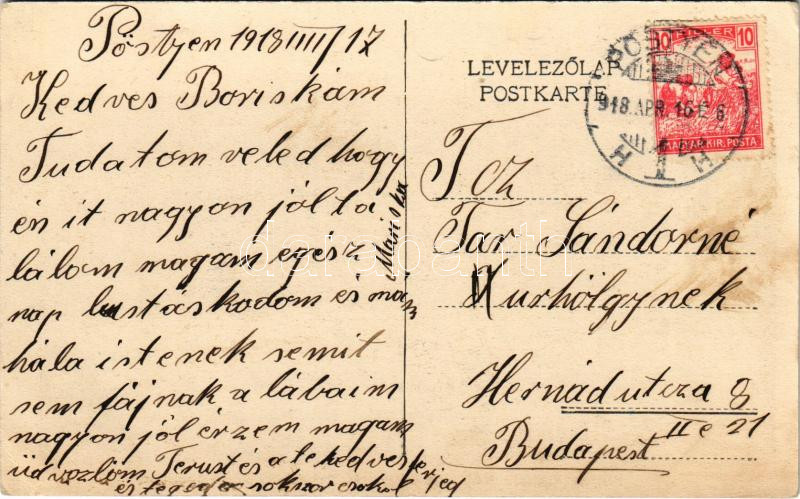 Pöstyen 1918 IIII/17
Kedves Boriskám
Tudatom veled hogy
én it nagyon jól ta
lálom magam egesz
nap lustaskodom és már
hála istenek semit
sem fájnak a lábaim
nagyon jól érzem magam
üdvozlöm Terust és a te kedves ferjed
és tegedet sokszor csokol
Mariska
LEVELEZŐLAP
POSTKARTE
PÖSTYÉN
918 APR. 16 E 6
10 10
MAGYAR KIR. POSTA
Tcz
Tar Sándorné
Kurhölgynek
Hernád utcza 8
II e 21
Budapest
darabanth